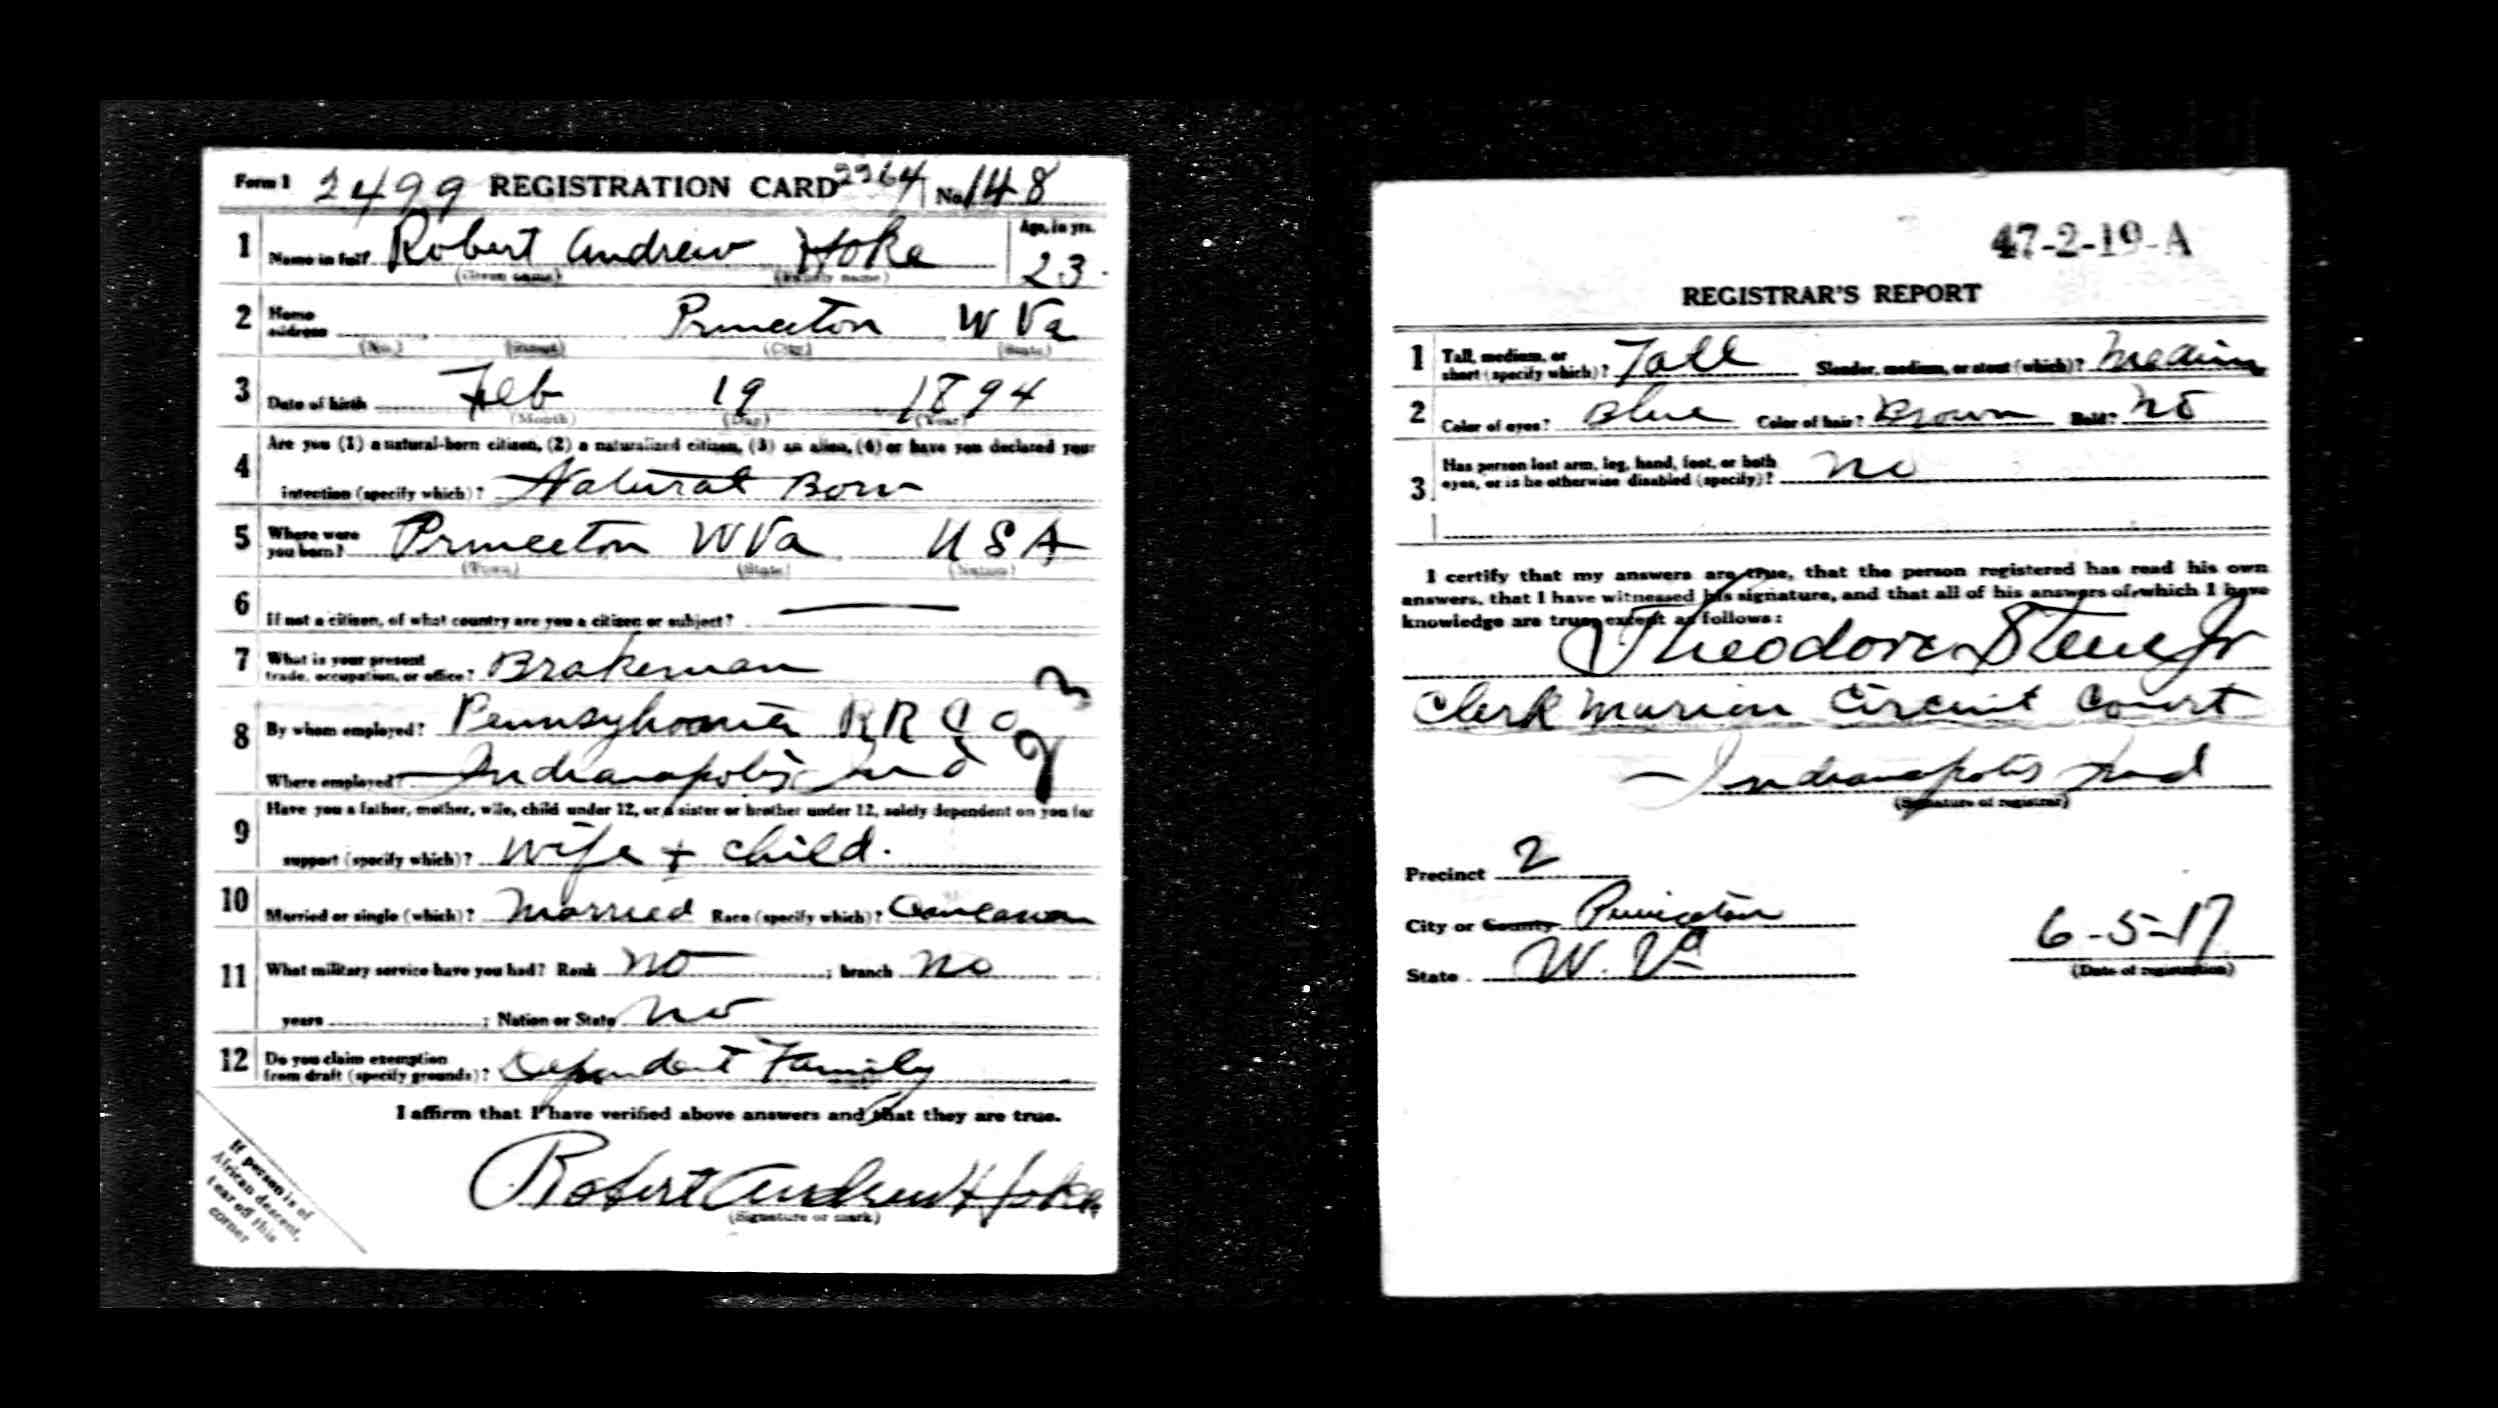 Form 1 2499 REGISTRATION CARD 2264 No. 148
1 Name in full? Robert Andrew Hoke Age, in yrs. 23
(Given name) (Family name)
2 Home address Princeton W Va
(No.) (Street) (City) (State)
3 Date of birth Feb 19 1894
(Month) (Day) (Year)
4 Are you (1) a natural-born citizen, (2) a naturalized citizen, (3) an alien, (4) or have you declared your
intention (specify which)? Natural Born
5 Where were you born? Princeton W Va U S A
(Town) (State) (Nation)
6 If not a citizen, of what country are you a citizen or subject?
7 What is your present trade, occupation, or office? Brakeman
8 By whom employed? Pennsylvania R R Co
Where employed? Indianapolis Ind
9 Have you a father, mother, wife, child under 12, or a sister or brother under 12, solely dependent on you for
support (specify which)? Wife + child.
10 Married or single (which)? Married Race (specify which)? Caucasian
11 What military service have you had? Rank No ; branch No
years ; Nation or State No
12 Do you claim exemption from draft (specify grounds)? Dependent Family
I affirm that I have verified above answers and that they are true.
Robert Andrew Hoke
(Signature or mark)
If person is of
African descent,
tear off this
corner
47-2-19-A
REGISTRAR'S REPORT
1 Tall, medium, or short (specify which)? Tall Slender, medium, or stout (which)? Medium
2 Color of eyes? Blue Color of hair? Brown Bald? No
3 Has person lost arm, leg, hand, foot, or both
eyes, or is he otherwise disabled (specify)? No
I certify that my answers are true, that the person registered has read his own
answers, that I have witnessed his signature, and that all of his answers of which I have
knowledge are true, except as follows:
Theodore Jr
Clerk Marion Circuit Court
Indianapolis Ind
(Signature of registrar)
Precinct 2
City or County Princeton
State W. Va
6-5-17
(Date of registration)